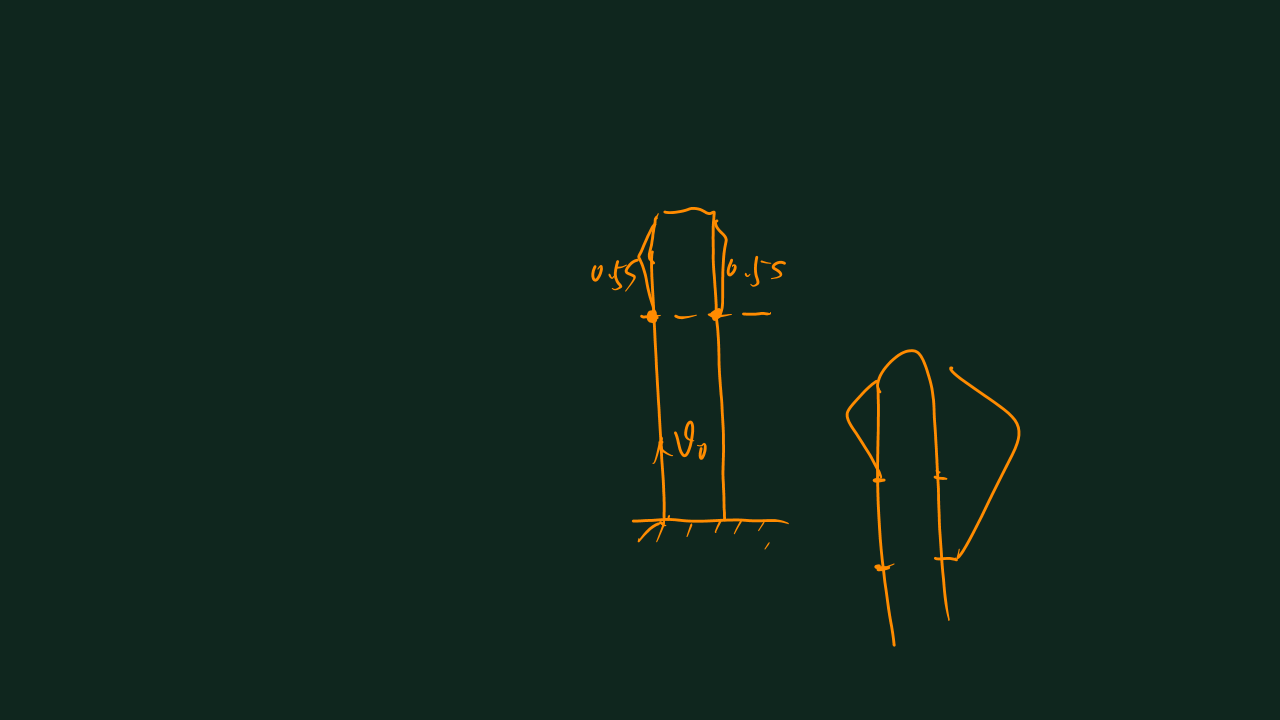 0.5s 0.5s
v₀